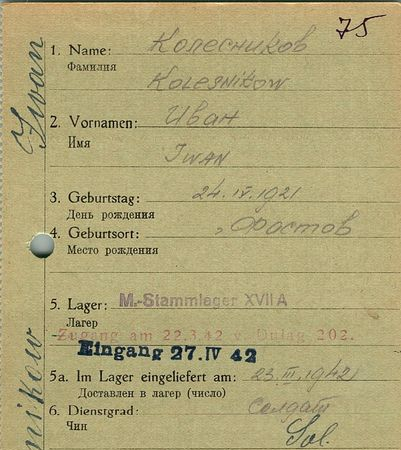 75
Iwan
1. Name: Колесников
Фамилия
Kolesnikow
2. Vornamen: Иван
Имя
Iwan
3. Geburtstag: 24.IV.1921
День рождения
4. Geburtsort: Фростов
Место рождения
5. Lager: M.-Stammlager XVII A
Лагерь
Zugang am 22.3.42 Dulag 202.
Eingang 27. IV 42
nikow
5a. Im Lager eingeliefert am: 23.III.1942
Доставлен в лагер (число)
6. Dienstgrad: солдат
Чин
Sol.